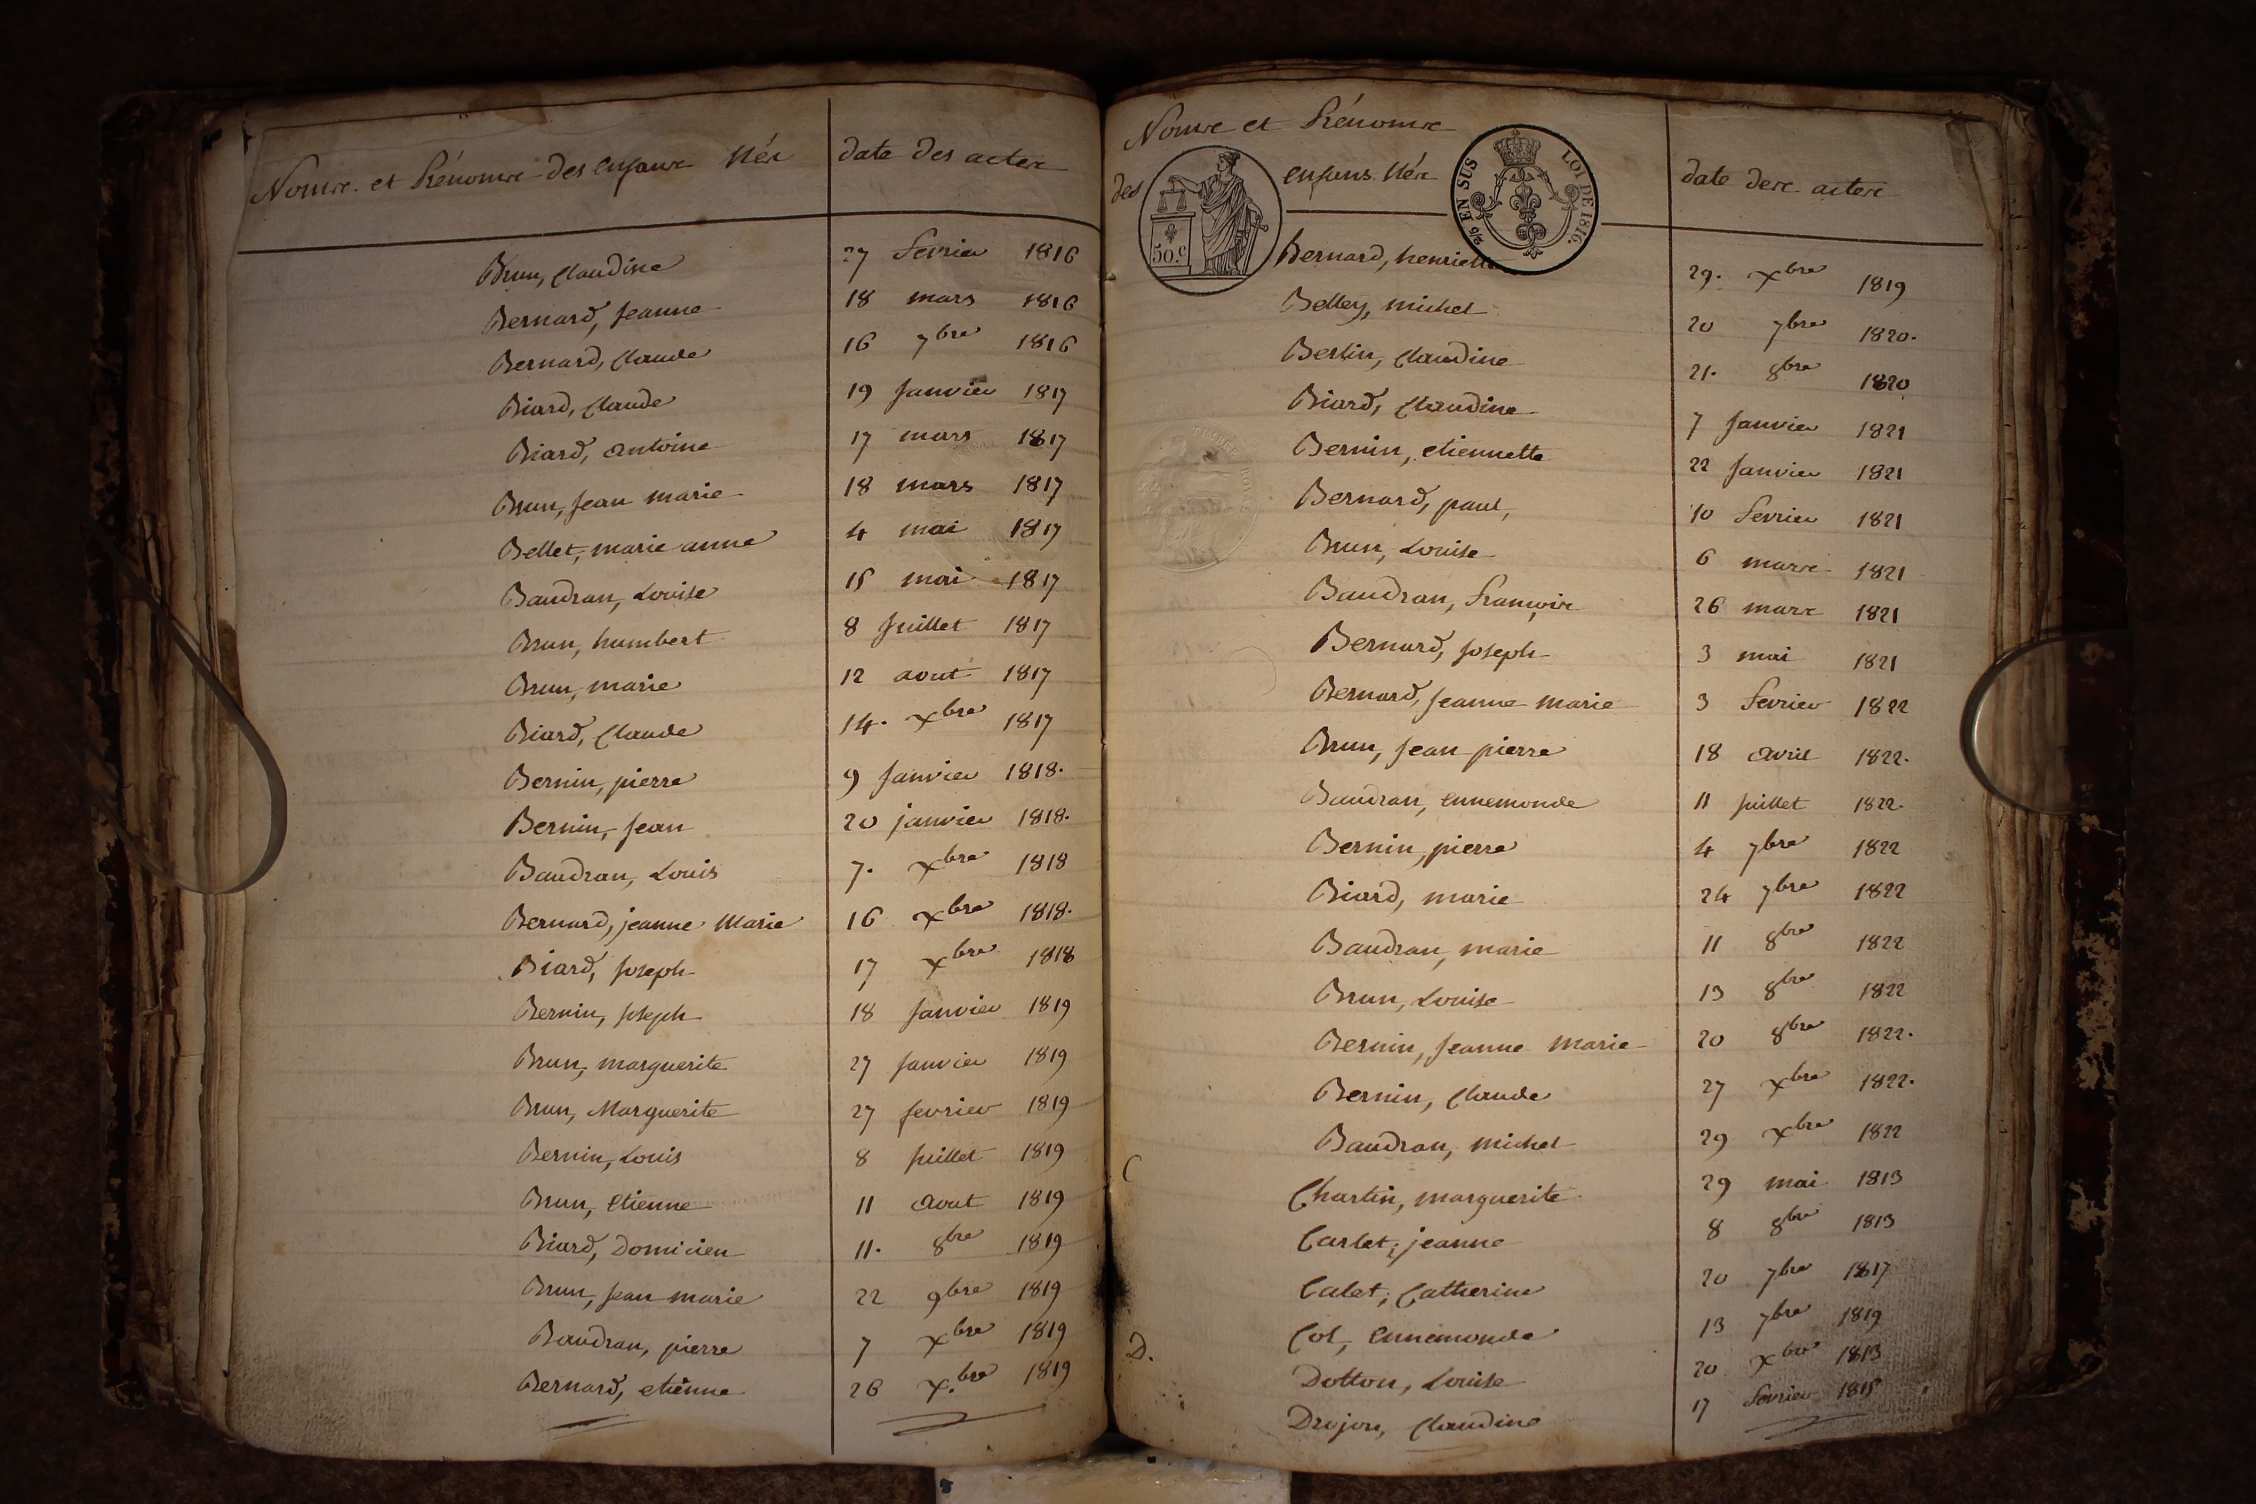 Noms et Prénoms des enfans Nés date des actes
Brun, Claudine 27 fevrier 1816
Bernard, Jeanne 18 mars 1816
Bernard, Claude 16 7bre 1816
Biard, Claude 19 Janvier 1817
Biard, antoine 17 mars 1817
Brun, Jean marie 18 mars 1817
Bellet, marie anne 4 mai 1817
Baudran, Louise 15 mai 1817
Brun, humbert 8 Juillet 1817
Brun, marie 12 aout 1817
Biard, Claude 14. xbre 1817
Bernin, pierre 9 Janvier 1818.
Bernin, Jean 20 janvier 1818.
Baudran, Louis 7. xbre 1818
Bernard, jeanne Marie 16 xbre 1818.
Biard, Joseph 17 xbre 1818
Bernin, Joseph 18 Janvier 1819
Brun, marguerite 27 Janvier 1819
Brun, Marguerite 27 fevrier 1819
Bernin, Louis 8 Juillet 1819
Brun, Etienne 11 Aout 1819
Biard, Domicien 11. 8bre 1819
Brun, Jean marie 22 9bre 1819
Baudran, pierre 7 xbre 1819
Bernard, etienne 26 x.bre 1819
Noms et Prénoms
des enfans Nés date des actes
50.c
2/5 EN SUS LOI DE 1816.
Bernard, henriette 29. xbre 1819
Belley, michel 20 7bre 1820.
Berlin, Claudine 21. 8bre 1820
Biard, Claudine 7 Janvier 1821
Bernin, etiennette 22 Janvier 1821
Bernard, paul, 10 fevrier 1821
Brun, Louise 6 mars 1821
Baudran, François 26 mars 1821
Bernard, Joseph 3 mai 1821
Bernard, Jeanne marie 3 fevrier 1822
Brun, Jean pierre 18 avril 1822.
Baudran, ennemonde 11 Juillet 1822.
Bernin, pierre 4 7bre 1822
Biard, marie 24 7bre 1822
Baudran, marie 11 8bre 1822
Brun, Louise 13 8bre 1822
Bernin, Jeanne marie 20 8bre 1822.
Bernin, Claude 27 xbre 1822.
Baudran, michel 29 xbre 1822
C
Charlin, marguerite 29 mai 1813
Carlet, jeanne 8 8bre 1813
Calet, Catherine 20 7bre 1817
Col, Ennemonde 13 7bre 1819
D.
Dotton, Louise 20 xbre 1813
Drojon, Claudine 17 fevrier 1815